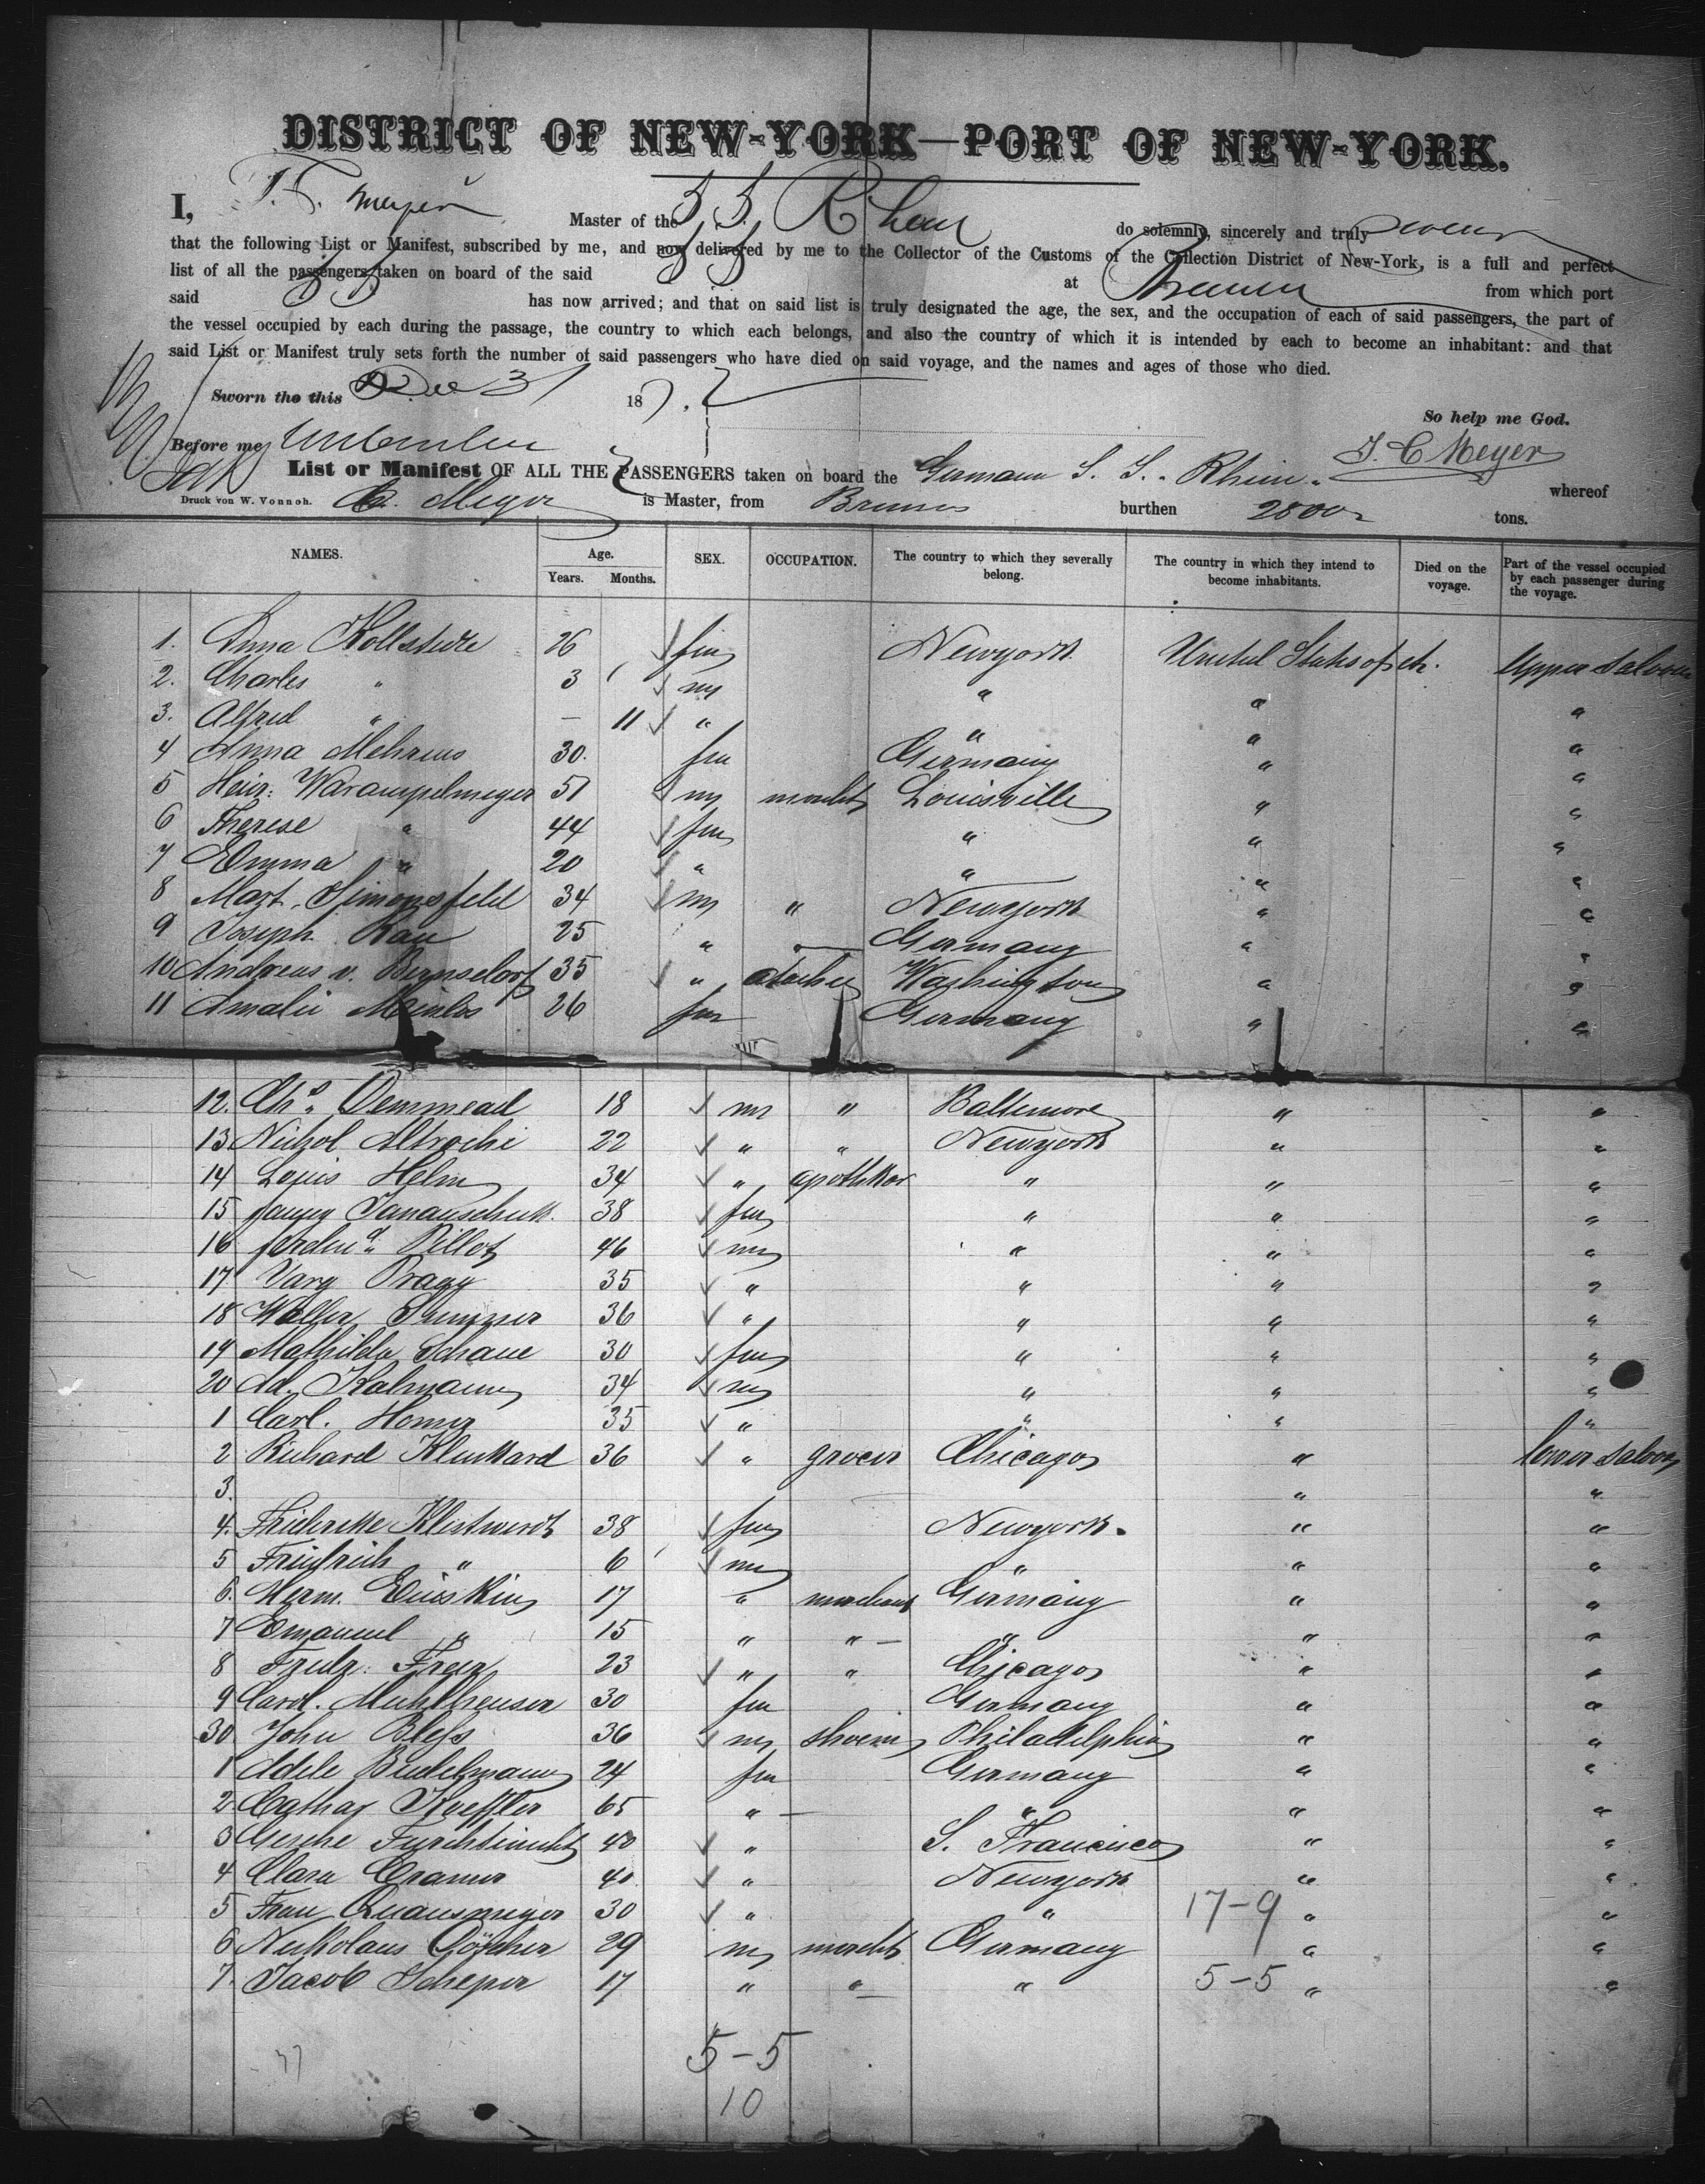 DISTRICT OF NEW-YORK—PORT OF NEW-YORK.
I, Meyer Master of the S. S. Rhein do solemnly, sincerely and truly swear
that the following List or Manifest, subscribed by me, and now delivered by me to the Collector of the Customs of the Collection District of New-York, is a full and perfect
list of all the passengers taken on board of the said SS at Bremen from which port
said SS has now arrived; and that on said list is truly designated the age, the sex, and the occupation of each of said passengers, the part of
the vessel occupied by each during the passage, the country to which each belongs, and also the country of which it is intended by each to become an inhabitant: and that
said List or Manifest truly sets forth the number of said passengers who have died on said voyage, and the names and ages of those who died.
Sworn tho this Dec 31 187
So help me God.
Before me
J. C Meyer
List or Manifest OF ALL THE PASSENGERS taken on board the German S. S. Rhein whereof
Druck von W. Vonnoh. C. Meyer is Master, from Bremen burthen 2800 tons.
NAMES. Age. Years. Months. SEX. OCCUPATION. The country to which they severally belong. The country in which they intend to become inhabitants. Died on the voyage. Part of the vessel occupied by each passenger during the voyage.
1. Anna 26 fm Newyork. United States of Upper Saloon
2. Charles " 3 m " " "
3. Alfred " — 11 " " " "
4 Anna Mehrens 30. fm Germany " "
5 Heinr. Warampelmeyer 51 m mercht Louisville " "
6 Therese " 44 fm " " "
7 Emma " 20 " " " "
8 Mart. Simonsfeld 34 m " Newyork " "
9 Joseph Rau 25 " — Germany " "
10 Andreas v. Bernsdorf 35 " Washington " "
11 Amalie 26 fm Germany " "
12. Chs. Demmead 18 m " Baltimore " "
13 Nichol 22 " " Newyork " "
14 Louis Helm 34 " apotheker " " "
15 Fanny Janauscheck. 38 fm " " "
16 Ferdind. Pillot 46 m " " "
17 Pragy 35 " " " "
18 Walter 36 " " " "
19 Mathilda Schaue 30 fm " " "
20 Ad. Kalmann 34 m " " "
1 Carl. 35 " " " "
2 Richard Klunkard 36 " grocer Chicago " lower saloon
3. " "
4. 38 fm Newyork. " "
5 Friedrich " 6 m " " "
6. Herm. 17 " merchant Germany " "
7 Emanuel " 15 " " — " " "
8 Fredr. 23 " " Chicago " "
9 Carol. Muhlheuser 30 fm Germany " "
30 John Bless 36 m shoem Philadelphia " "
1 Adele Budelmann 24 fm Germany " "
2 Cathar 65 " — " " "
3 Gesche 40 " S. Francisco " "
4 Clara Cramer 40 " Newyork " "
5 Frau Quausmeyer 30 " " 17-9 " "
6 Nickolaus 29 m mercht Germany " "
7. Jacob Scheper 17 " " — " 5-5 " "
37
5-5
10